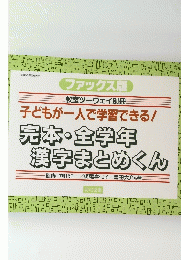 ファックス版
教室ツーウェイ別冊
子どもが一人で学習できる!
完本・全学年
漢字まとめくん